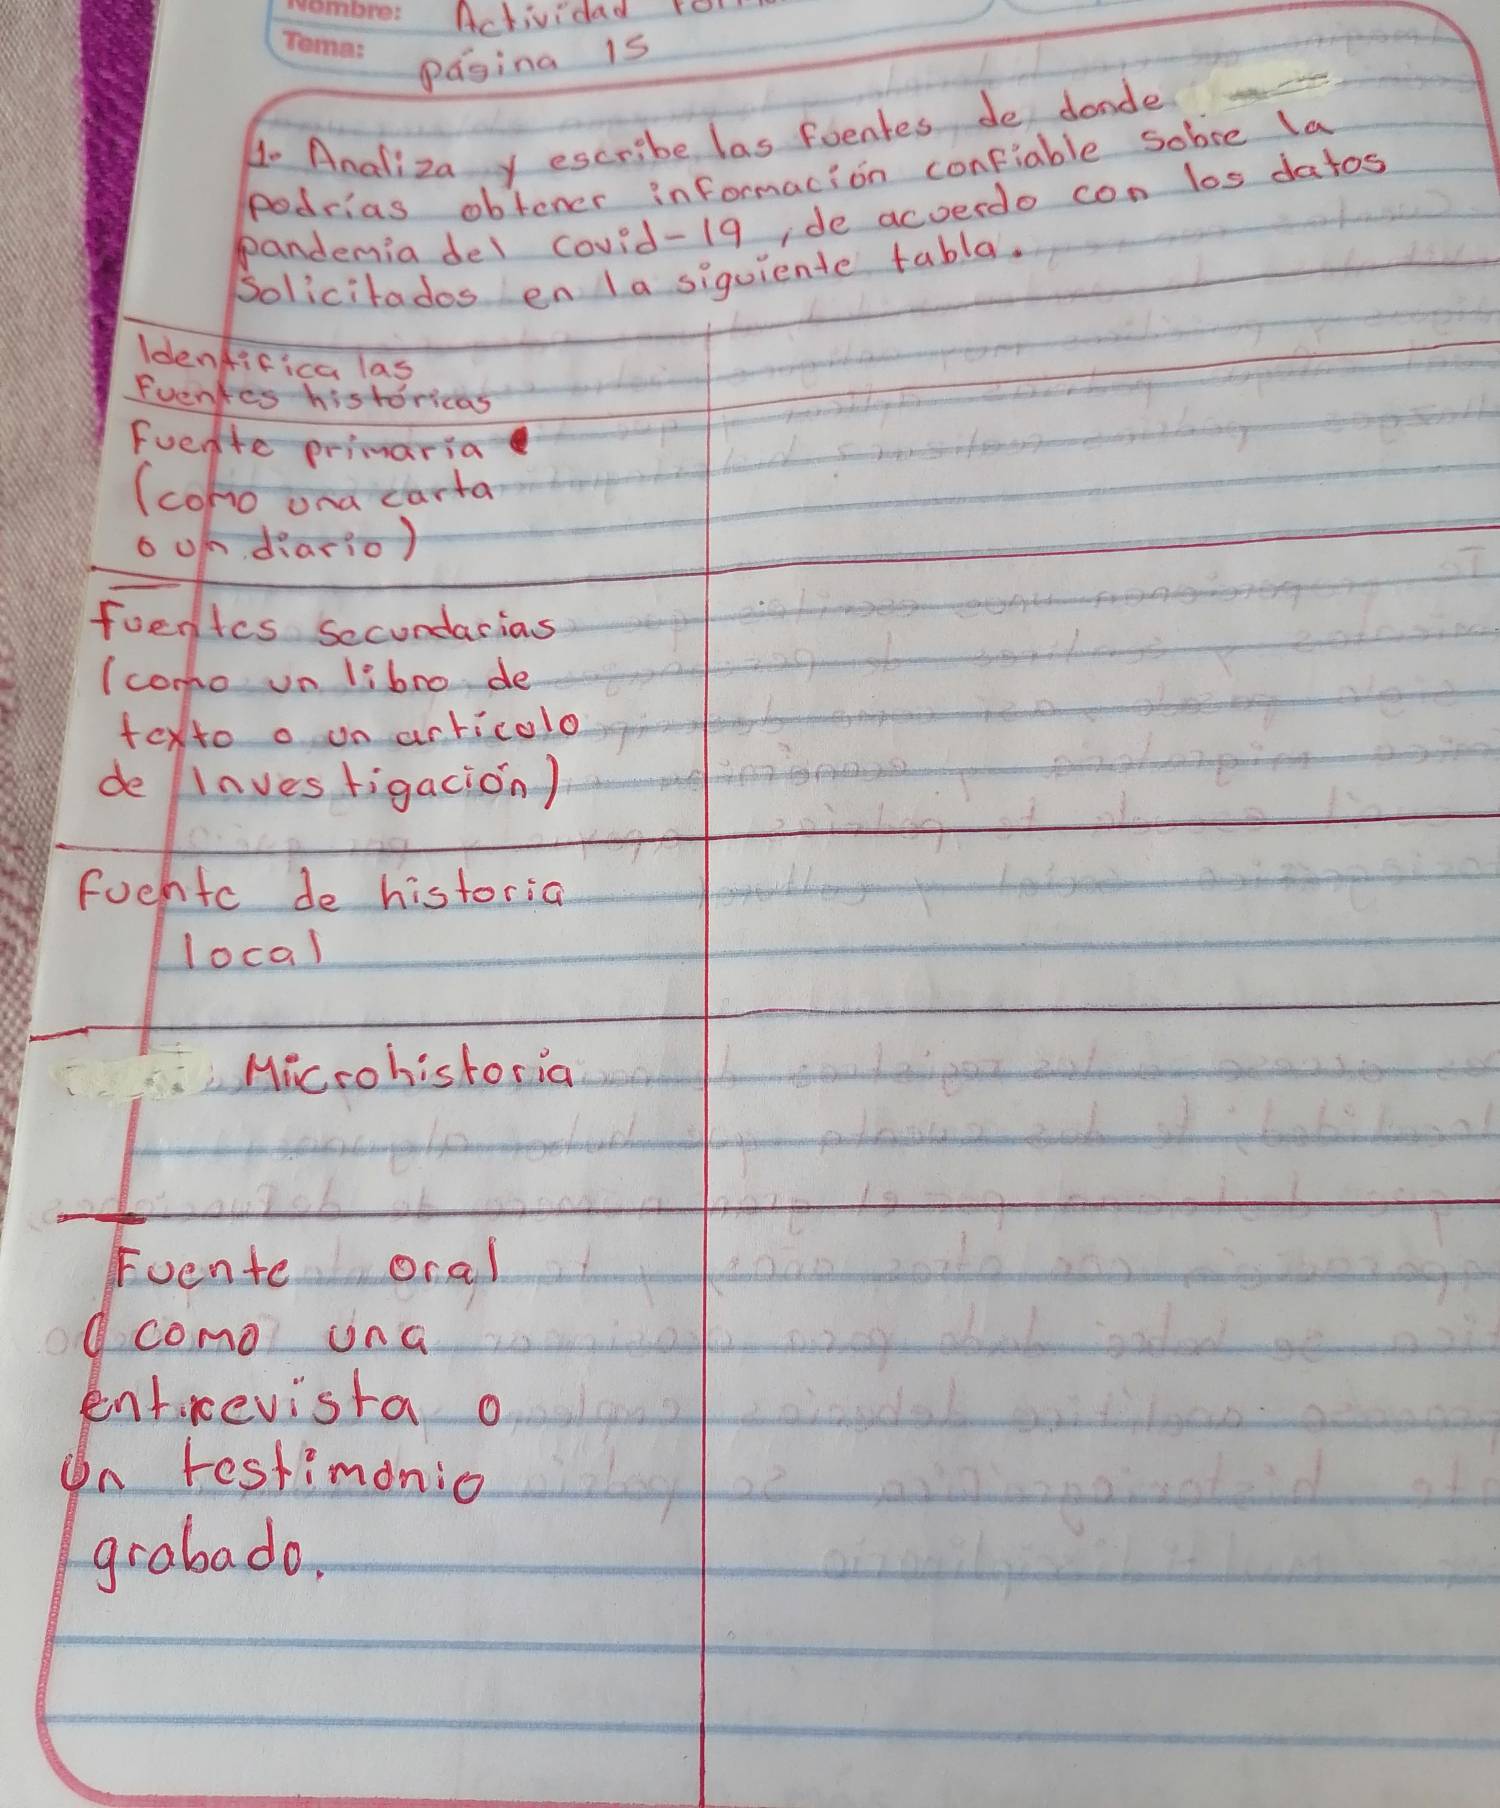 Nombre: Actividad
Tema: página 15
1. Analiza y escribe las fuentes de donde
podrías obtener información confiable sobre la
pandemia del covid-19, de acuerdo con los datos
solicitados en la siguiente tabla.
Identifica las
fuentes históricas
Fuente primaria
(como una carta
o un diario)
Fuentes secundarias
(como un libro de
texto o un articulo
de investigación)
Fuente de historia
local
Microhistoria
Fuente oral
(como una
entrevista o
un testimonio
grabado.